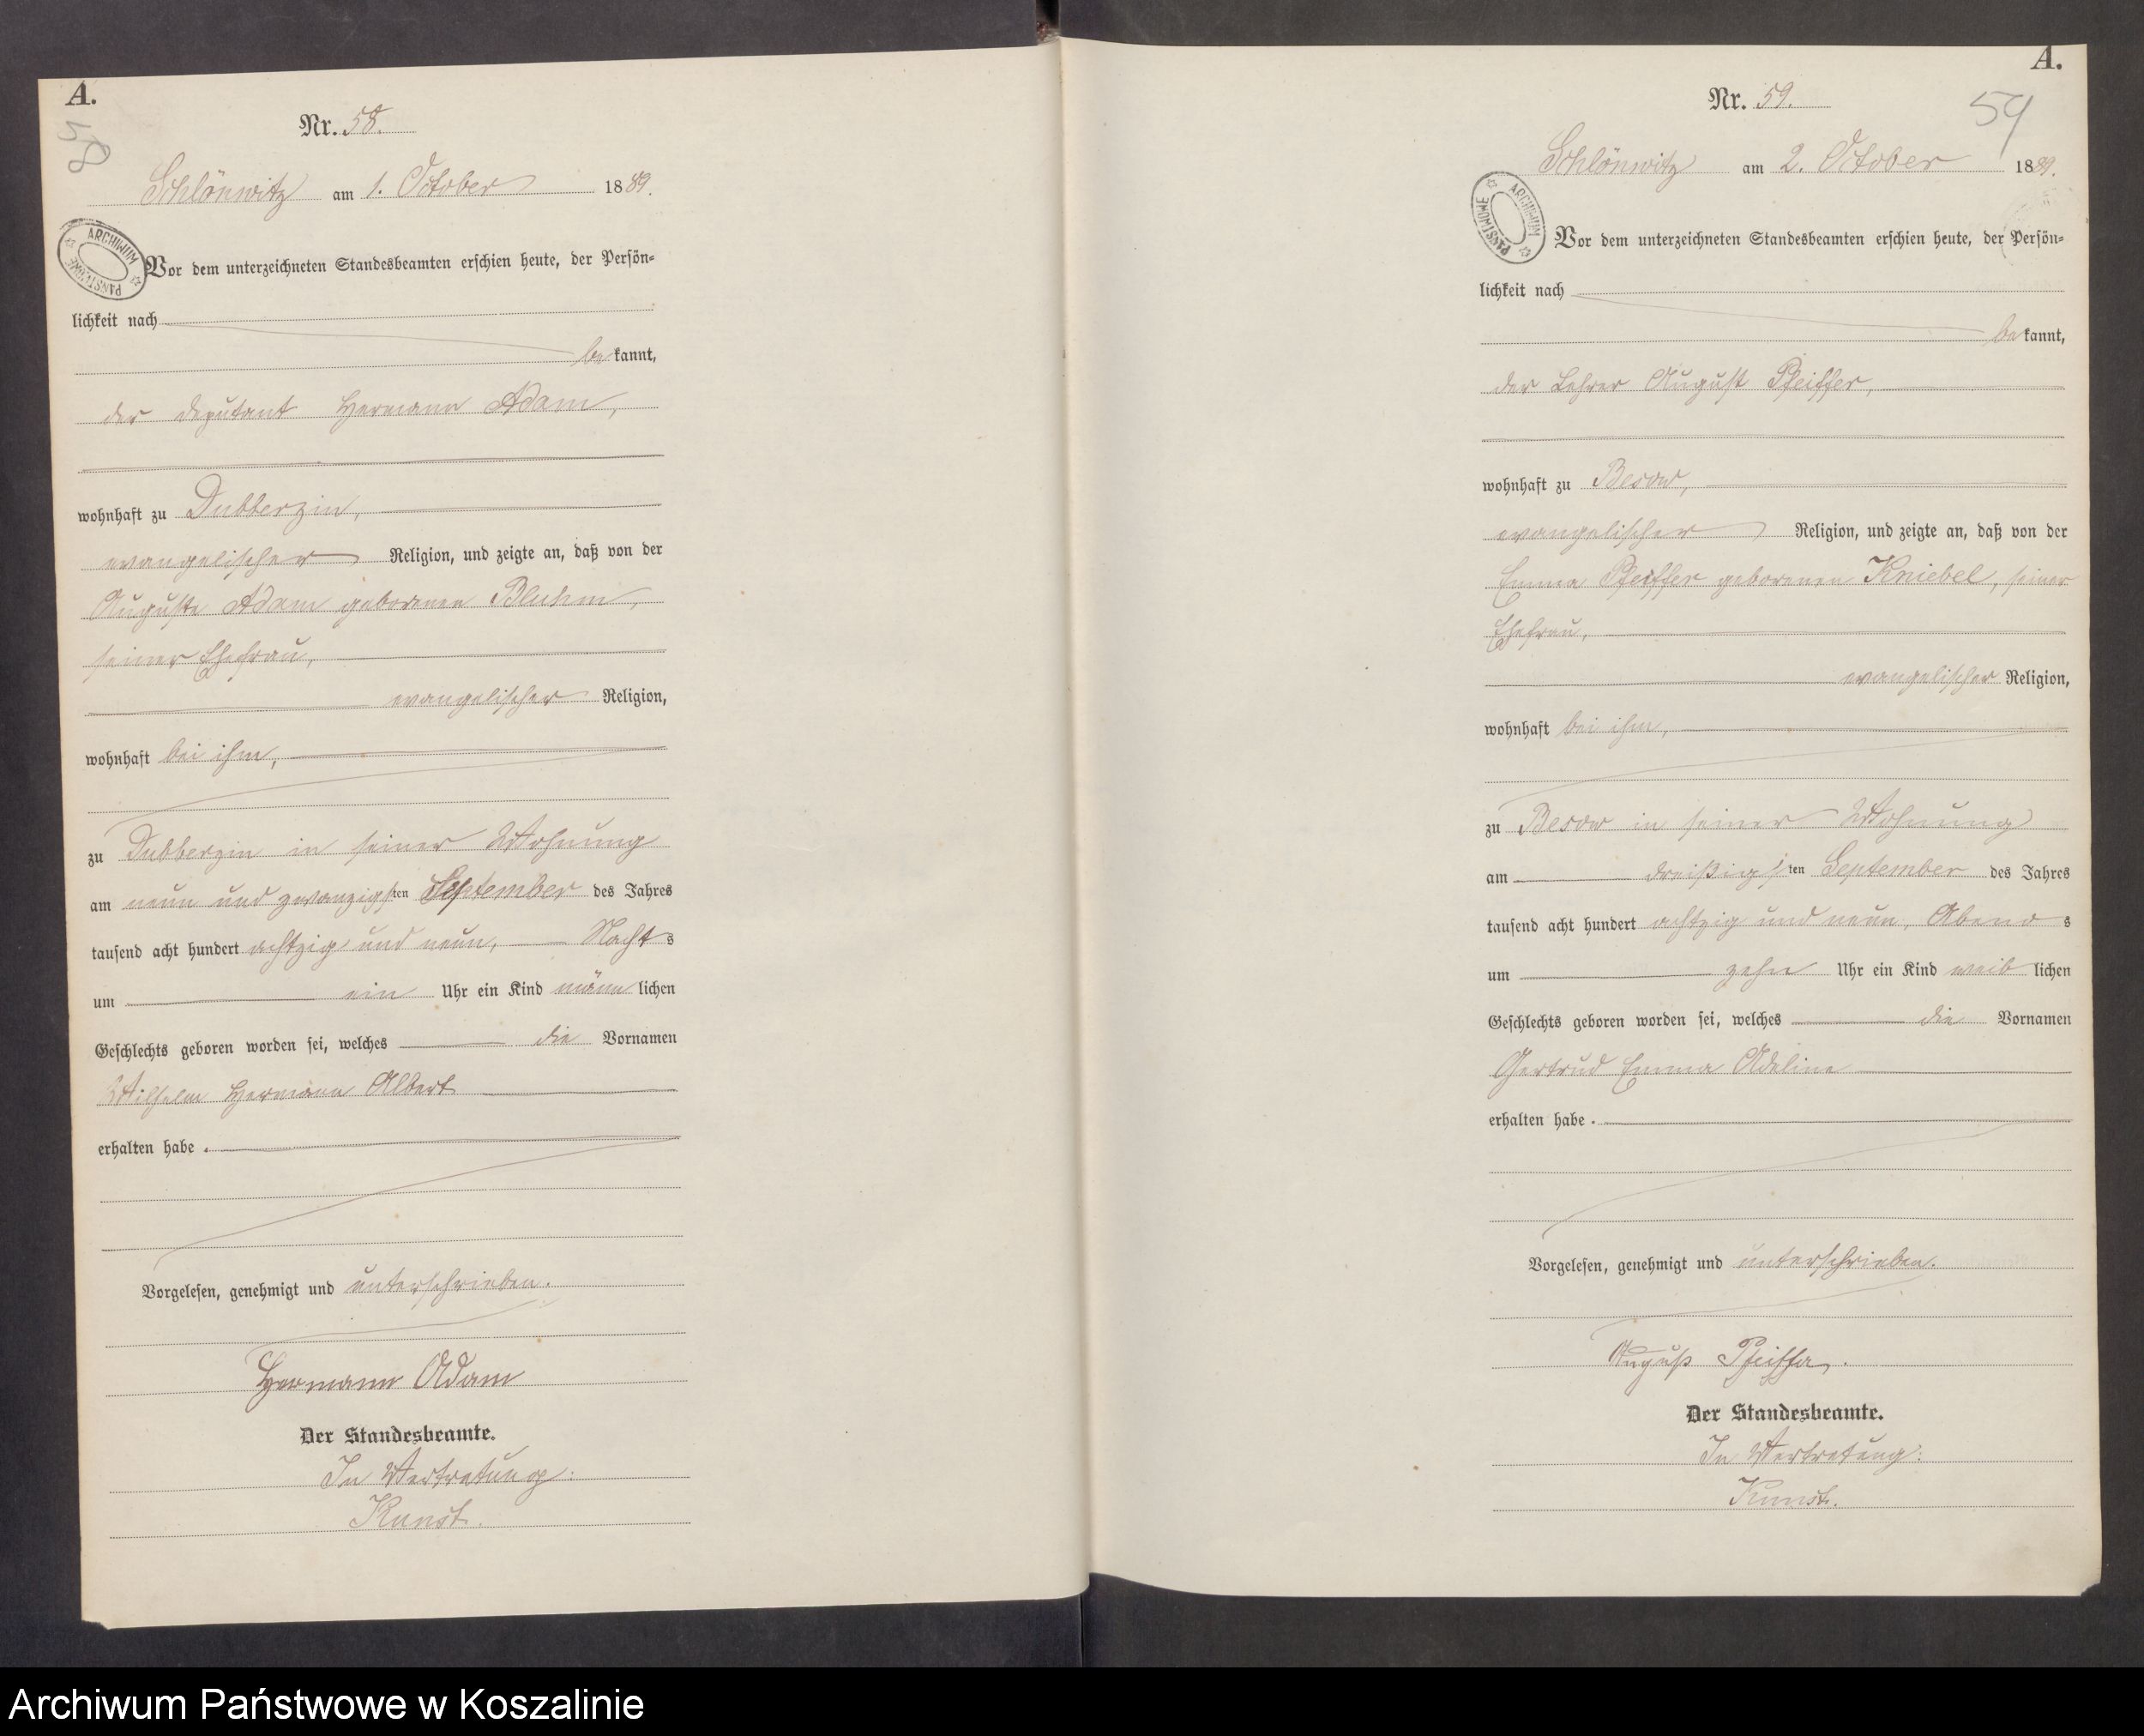 A.
58
Nr. 58.
Schlönwitz am 1. October 1889.
ARCHIWUM PAŃSTWOWE
Vor dem unterzeichneten Standesbeamten erschien heute, der Persön-
lichkeit nach
bekannt,
der Deputant Hermann Adam,
wohnhaft zu Dubberzin,
evangelischer Religion, und zeigte an, daß von der
Auguste Adam geborenen Bluhm,
seiner Ehefrau,
evangelischer Religion,
wohnhaft bei ihm,
zu Dubberzin in seiner Wohnung
am neun und zwanzigsten September des Jahres
tausend acht hundert achtzig und neun, Nachts
um ein Uhr ein Kind männlichen
Geschlechts geboren worden sei, welches die Vornamen
Wilhelm Hermann Albert
erhalten habe.
Vorgelesen, genehmigt und unterschrieben.
Hermann Adam
Der Standesbeamte.
In Vertretung:
Kunst.
A.
59
Nr. 59.
Schlönwitz am 2. October 1889.
ARCHIWUM PAŃSTWOWE
Vor dem unterzeichneten Standesbeamten erschien heute, der Persön-
lichkeit nach
bekannt,
der Lehrer August Pfeiffer,
wohnhaft zu Besow,
evangelischer Religion, und zeigte an, daß von der
Emma Pfeiffer geborenen Kniebel, seiner
Ehefrau,
evangelischer Religion,
wohnhaft bei ihm,
zu Besow in seiner Wohnung
am dreißigsten September des Jahres
tausend acht hundert achtzig und neun, Abends
um zehn Uhr ein Kind weiblichen
Geschlechts geboren worden sei, welches die Vornamen
Gertrud Emma Adeline
erhalten habe.
Vorgelesen, genehmigt und unterschrieben.
August Pfeiffer.
Der Standesbeamte.
In Vertretung:
Kunst.
Archiwum Państwowe w Koszalinie